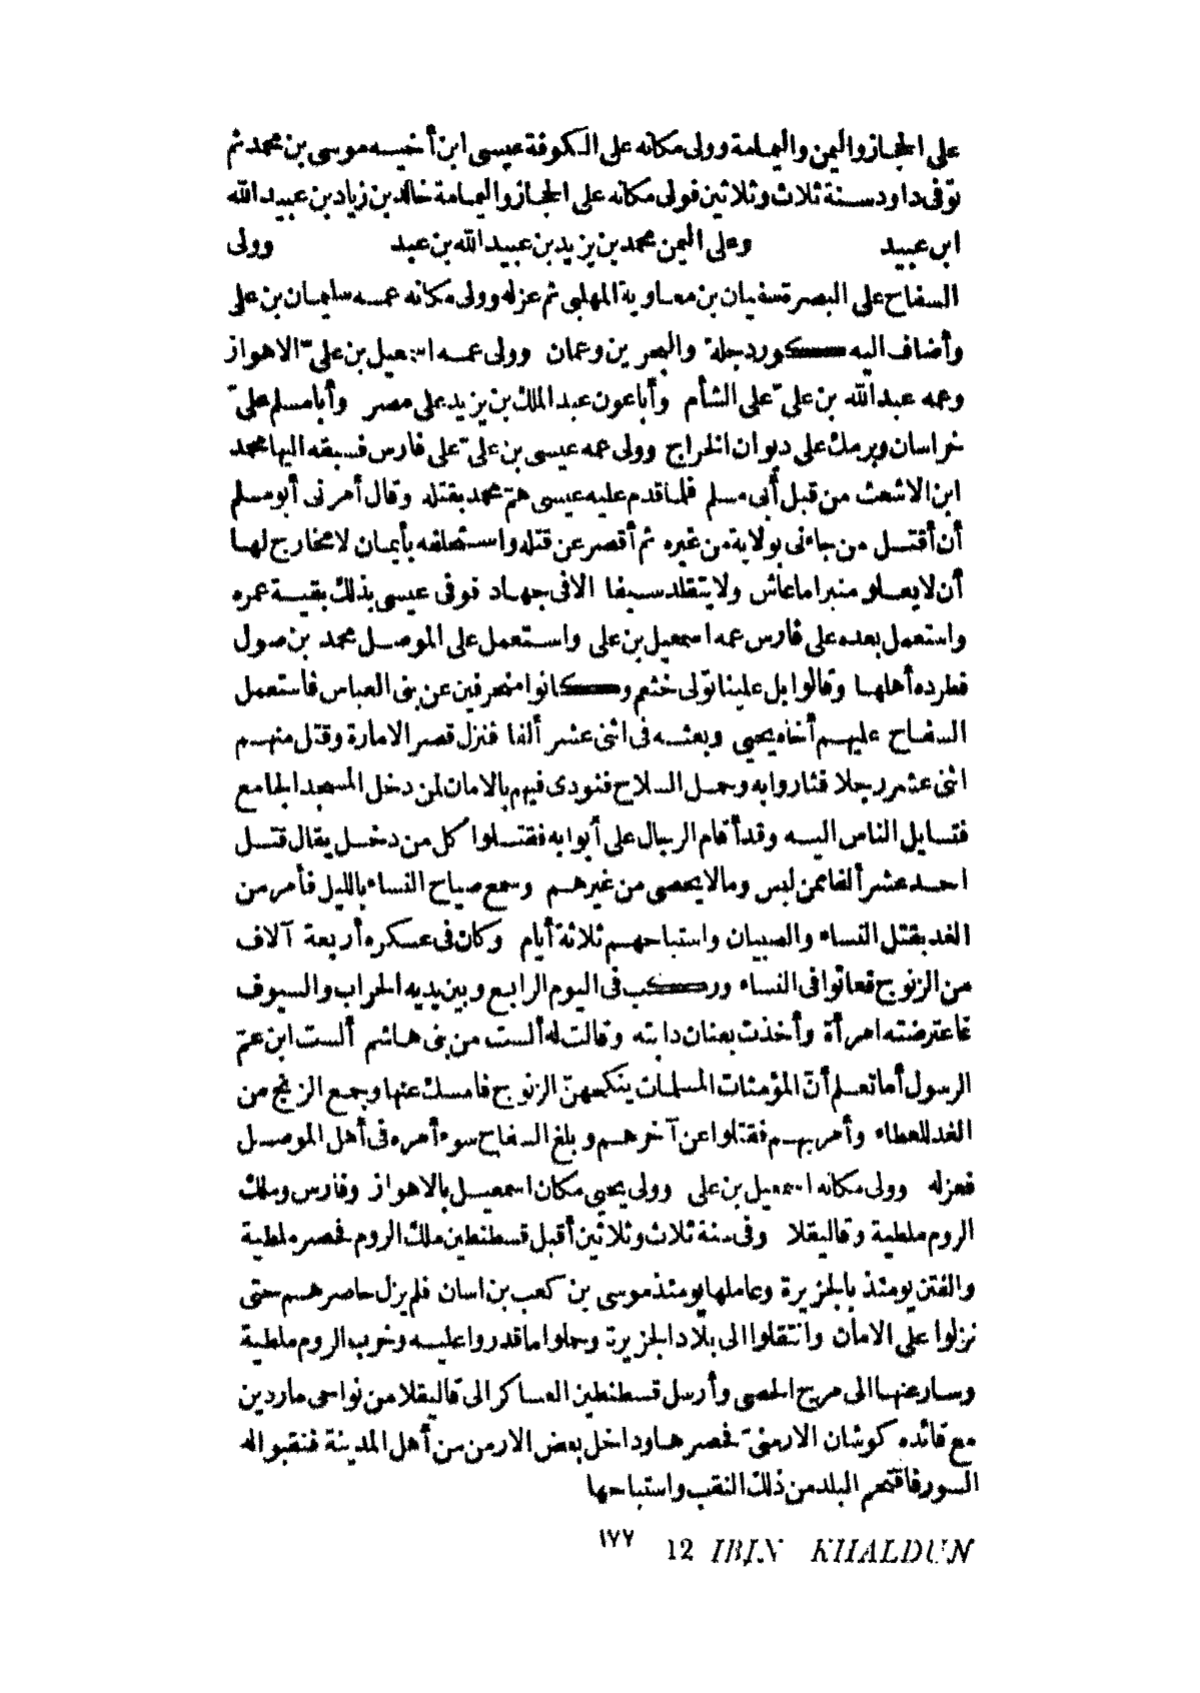 على الحجاز واليمن واليمامة وولى مكانه على الكوفة عيسى ابن أخيه موسى بن محمد ثم
توفى داود سنة ثلاث وثلاثين فولى مكانه على الحجاز واليمامة خالد بن زياد بن عبيد الله
ابن عبيد وعلى اليمن محمد بن يزيد بن عبيد الله بن عبد وولى
السفاح على البصرة سفيان بن معاوية المهلبى ثم عزله وولى مكانه عمه سليمان بن على
وأضاف اليه كور دجلة والبحرين وعمان وولى عمه اسمعيل بن علىّ الاهواز
وعمه عبد الله بن علىّ على الشأم وأبا عون عبد الملك بن يزيد على مصر وأبا مسلم علىّ
خراسان وبرمك على ديوان الخراج وولى عمه عيسى بن علىّ على فارس فسبقه اليها محمد
ابن الاشعث من قبل أبى مسلم فلما قدم عليه عيسى همّ محمد بقتله وقال أمرنى أبو مسلم
أن أقتل من جاءنى بولاية من غيره ثم أقصر عن قتله واستحلفه بأيمان لا مخارج لها
أن لا يعلو منبرا ما عاش ولا يتقلد سيفا الا فى جهاد فوفى عيسى بذلك بقية عمره
واستعمل بعده على فارس عمه اسمعيل بن على واستعمل على الموصل محمد بن صول
فطرده أهلها وقالوا بل علينا تولى خثم وكانوا منحرفين عن بنى العباس فاستعمل
السفاح عليهم أخاه يحيى وبعثه فى اثنى عشر ألفا فنزل قصر الامارة وقتل منهم
اثنى عشر رجلا فثاروا به وحمل السلاح فنودى فيهم بالامان لمن دخل المسجد الجامع
فتسايل الناس اليه وقد أقام الرجال على أبوابه فقتلوا كل من دخل يقال قتل
احد عشر ألفا ممن لبس وما لا يحصى من غيرهم وسمع صياح النساء بالليل فأمر من
الغد بقتل النساء والصبيان واستباحهم ثلاثة أيام وكان فى عسكره أربعة آلاف
من الزنوج فعاثوا فى النساء وركب فى اليوم الرابع وبين يديه الحراب والسيوف
فاعترضته امرأة وأخذت بعنان دابته وقالت له ألست من بنى هاشم ألست ابن عمّ
الرسول أما تعلم أنّ المؤمنات المسلمات ينكحهنّ الزنوج فامسك عنها وجمع الزنج من
الغد للعطاء وأمر بهم فقتلوا عن آخرهم وبلغ السفاح سوء أمره فى أهل الموصل
فعزله وولى مكانه اسمعيل بن على وولى يحيى مكان اسمعيل بالاهواز وفارس وملك
الروم ملطية وقاليقلا وفى سنة ثلاث وثلاثين أقبل قسطنطين ملك الروم فحصر ملطية
والفتن يومئذ بالجزيرة وعاملها يومئذ موسى بن كعب بن اسان فلم يزل حاصرهم حتى
نزلوا على الامان وانتقلوا الى بلاد الجزيرة وحملوا ما قدروا عليه وخرب الروم ملطية
وسار عنها الى مرج الحصى وأرسل قسطنطين العساكر الى قاليقلا من نواحى ماردين
مع قائده كوشان الارمنىّ فحصرها وداخل بعض الارمن من أهل المدينة فنقبوا له
السور فاقتحم البلد من ذلك النقب واستباحها
١٧٧ 12 IBIN KHALDUN